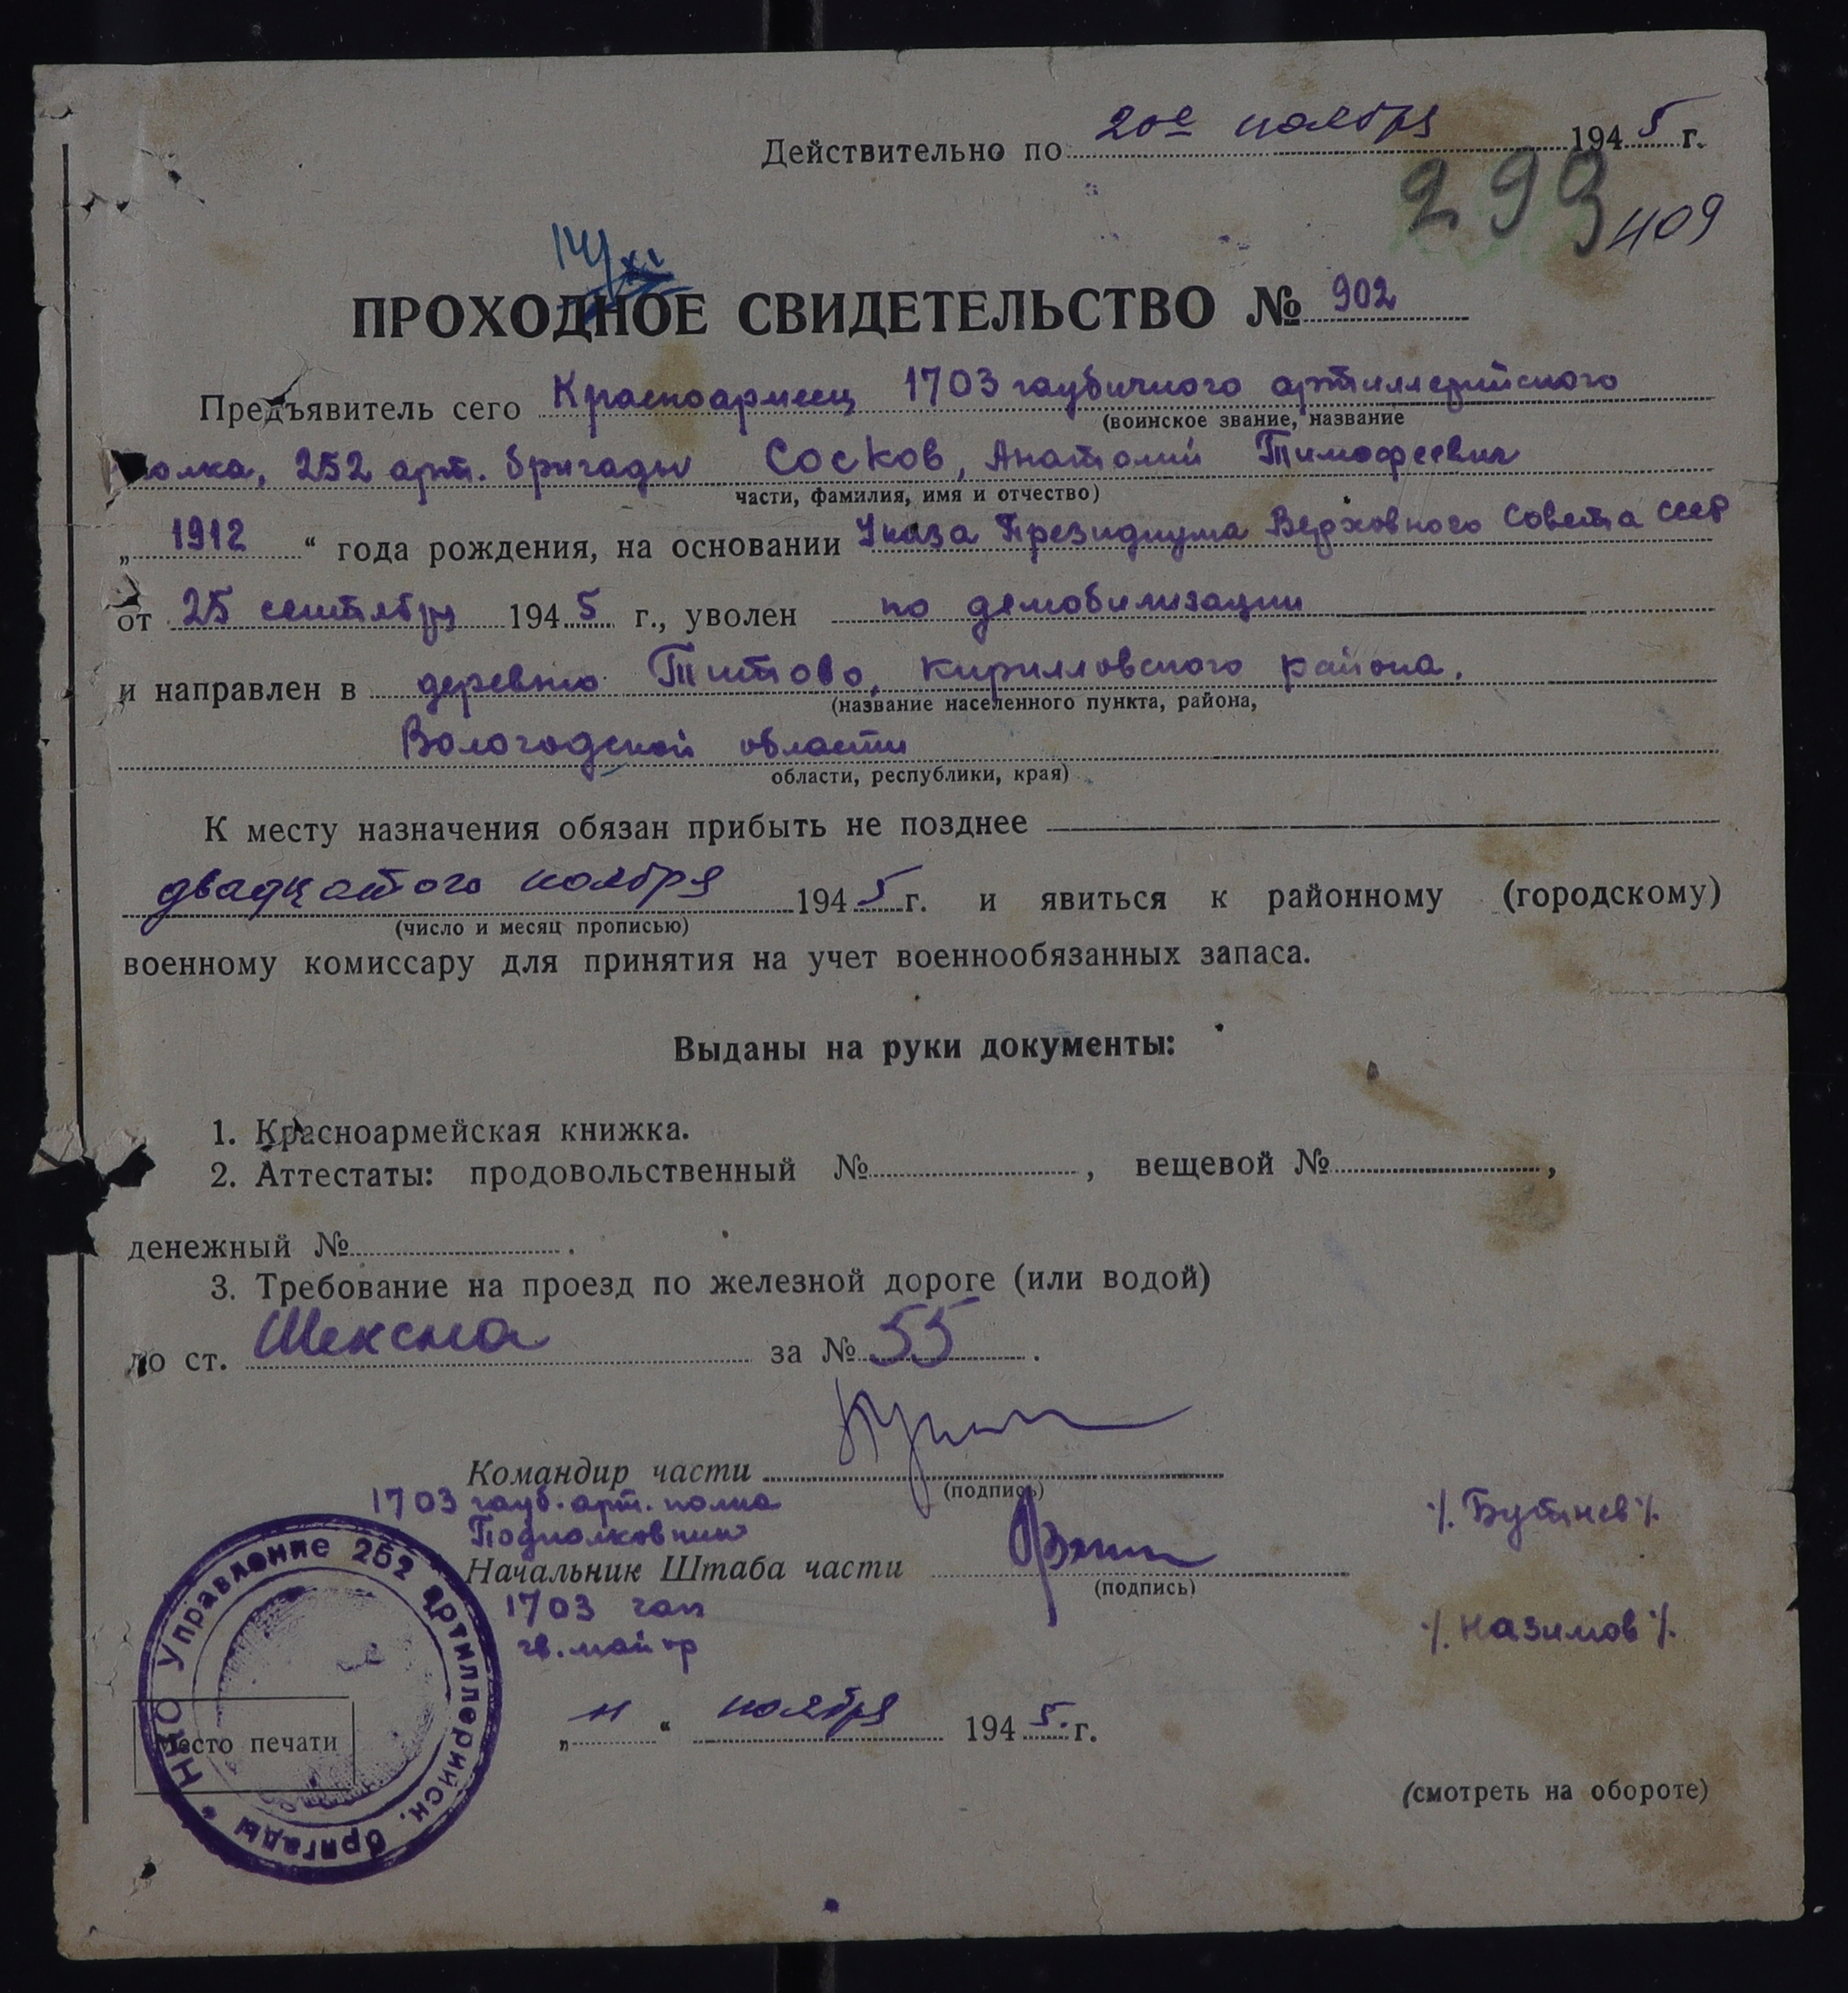 Действительно по 20е ноября 1945 г.
299
409
14/XI
ПРОХОДНОЕ СВИДЕТЕЛЬСТВО № 902
Предъявитель сего Красноармеец 1703 гаубичного артиллерийского
(воинское звание, название
полка, 252 арт. бригады Сосков, Анатолий Тимофеевич
части, фамилия, имя и отчество)
„ 1912 “ года рождения, на основании Указа Президиума Верховного Совета СССР
от 25 сентября 1945 г., уволен по демобилизации
и направлен в деревню Титово, Кирилловского района,
(название населенного пункта, района,
Вологодской области
области, республики, края)
К месту назначения обязан прибыть не позднее
двадцатого ноября 1945 г. и явиться к районному (городскому)
(число и месяц прописью)
военному комиссару для принятия на учет военнообязанных запаса.
Выданы на руки документы:
1. Красноармейская книжка.
2. Аттестаты: продовольственный № , вещевой № ,
денежный № .
3. Требование на проезд по железной дороге (или водой)
до ст. Шексна за № 55 .
Командир части
(подпись)
1703 гауб. арт. полка
Подполковник
/. Бутнев /.
Начальник Штаба части
(подпись)
1703 гап
гв. майор
/. Назимов /.
„ 11 “ ноября 1945. г.
Место печати
НКО Управление 252 артиллерийск. бригады
(смотреть на обороте)